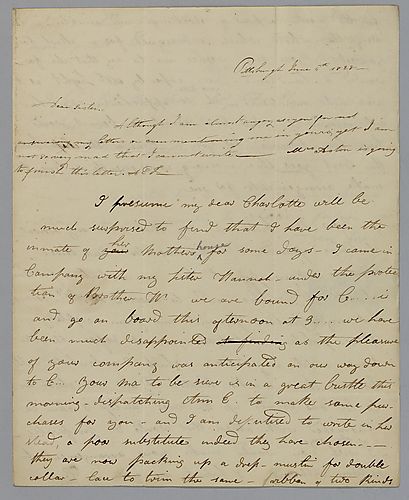 Pittsburgh June 5th 1828
Dear Sister.
Although I am almost angry at you for not
answering my letter or even mentioning me in yours, yet I am
not so very mad that I cannot write. Mrs is going
to finish this letter.
I presume my dear Charlotte will be
much surprised to find that I have been the
inmate of her Mothers house for some days - I came in
Company with my sister Hannah - under the protec
tion of Brother Wm we are bound for C....i
and go on board this afternoon at 3.... we have
been much disappointed as the pleasure
of your company was anticipated on our way down
to C... Your Ma to be sure is in a great bustle this
morning - dispatching Ann C to make some pur-
chases for you - and I am deputized to write in her
stead, a poor substitute indeed they have chosen---
they are now packing up a dress - muslin for double
collar - lace to trim the same - (ribbon of two kinds